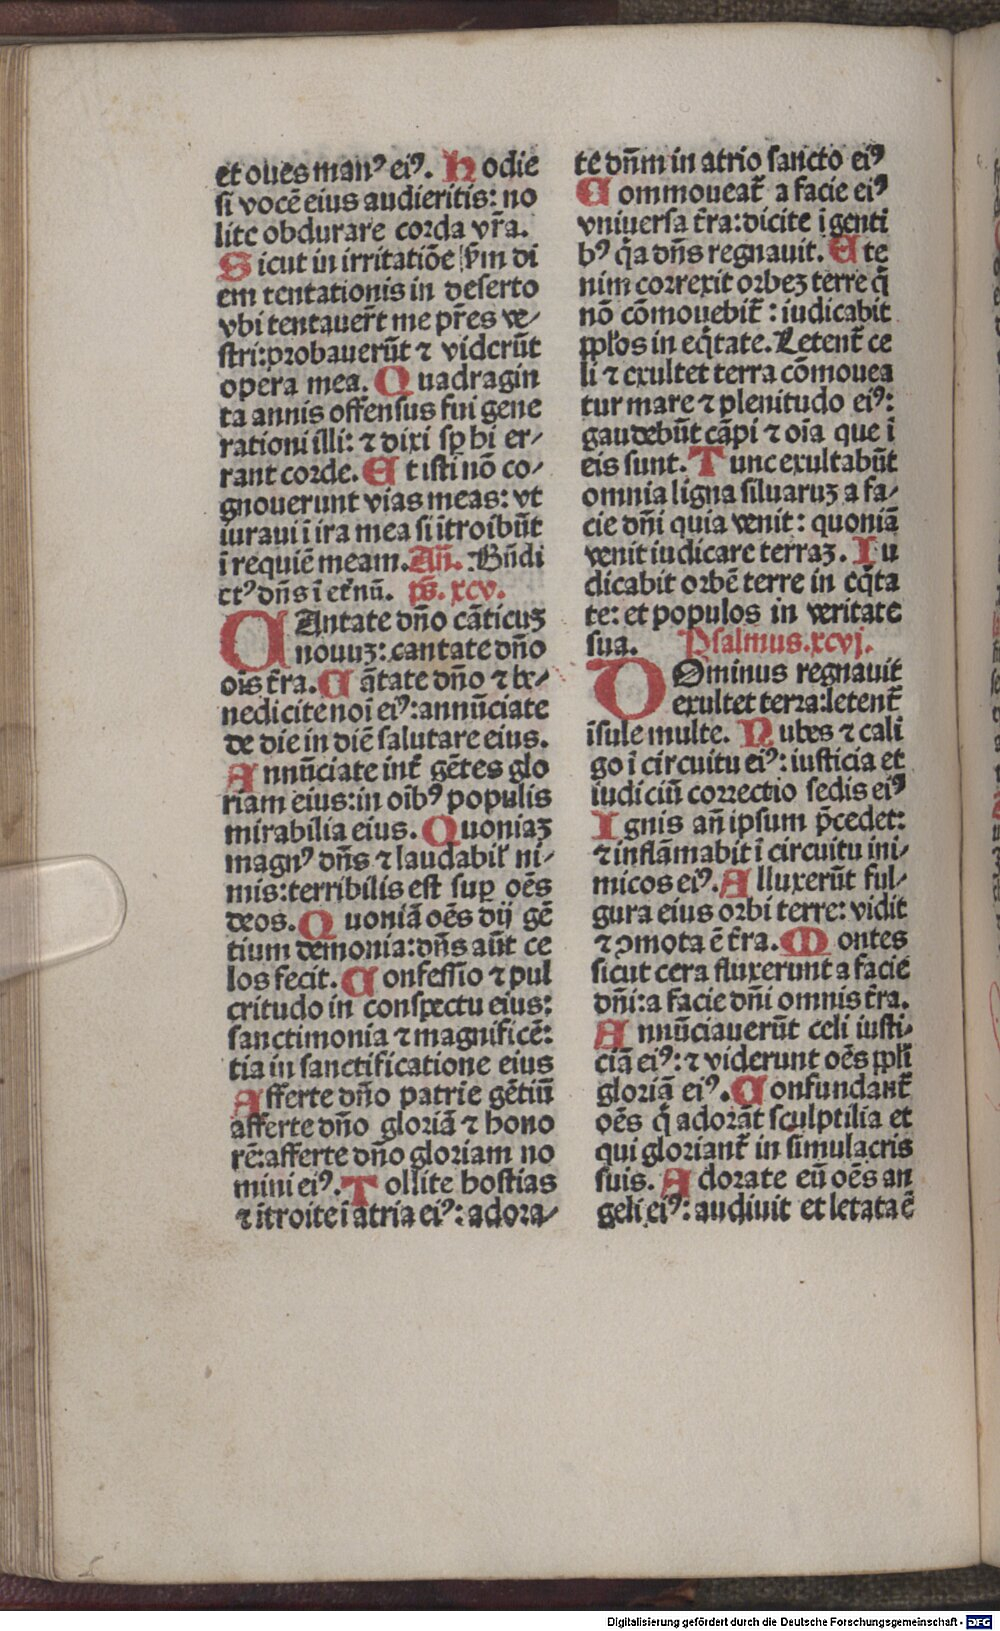 et oues manꝰ eiꝰ. Hodie
si vocē eius audieritis: no
lite obdurare corda vr̄a.
Sicut in irritatiōe ẜm di
em tentationis in deserto
vbi tentauer̄t me pr̄es ve/
stri: probauerūt ⁊ viderūt
opera mea. Quadragin
ta annis offensus fui gene
rationi illi: ⁊ dixi sꝑ hi er/
rant corde. Et isti nō co/
gnouerunt vias meas: vt
iuraui ī ira mea si ītroibūt
ī requiē meam. An̄. Bn̄di
ctꝰ dn̄s ī et̄nū. ps̄. xcv.
CAntate dn̄o cāticuꝫ
nouuꝫ: cantate dn̄o
oīs t̄ra. Cātate dn̄o ⁊ be/
nedicite noī eiꝰ: annūciate
de die in diē salutare eius.
Annūciate int̄ gētes glo
riam eius: in oībꝰ populis
mirabilia eius. Quoniaꝫ
magnꝰ dn̄s ⁊ laudabil̄ ni/
mis: terribilis est suꝑ oēs
deos. Quoniā oēs dij gē
tium demonia: dn̄s aūt ce
los fecit. Confessio ⁊ pul
critudo in conspectu eius:
sanctimonia ⁊ magnificē:
tia in sanctificatione eius
Afferte dn̄o patrie gētiū
afferte dn̄o gloriā ⁊ hono
rē: afferte dn̄o gloriam no
mini eiꝰ. Tollite hostias
⁊ ītroite ī atria eiꝰ: adora/
te dn̄m in atrio sancto eiꝰ
Commoueat̄ a facie eiꝰ
vniuersa t̄ra: dicite ī genti
bꝰ q̄a dn̄s regnauit. Ete
nim correxit orbeꝫ terre q̄
nō cōmouebit̄: iudicabit
ppl̄os in eq̄tate. Letent̄ ce
li ⁊ exultet terra cōmouea
tur mare ⁊ plenitudo eiꝰ:
gaudebūt cāpi ⁊ oīa que ī
eis sunt. Tunc exultabūt
omnia ligna siluaruꝫ a fa/
cie dn̄i quia venit: quoniā
venit iudicare terraꝫ. Iu
dicabit orbē terre in eq̄ta
te: et populos in veritate
sua. Psalmus. xcvj.
DOminus regnauit
exultet terra: letent̄
īsule multe. Nubes ⁊ cali
go ī circuitu eiꝰ: iusticia et
iudiciū correctio sedis eiꝰ
Ignis an̄ ipsum p̄cedet:
⁊ inflāmabit ī circuitu ini/
micos eiꝰ. Alluxerūt ful/
gura eius orbi terre: vidit
⁊ ꝯmota ē t̄ra. Montes
sicut cera fluxerunt a facie
dn̄i: a facie dn̄i omnis t̄ra.
Annūciauerūt celi iusti/
ciā eiꝰ: ⁊ viderunt oēs ppl̄i
gloriā eiꝰ. Confundant̄
oēs q̄ adorāt sculptilia et
qui gloriant̄ in simulacris
suis. Adorate eū oēs an
geli eiꝰ: audiuit et letata ē
Digitalisierung gefördert durch die Deutsche Forschungsgemeinschaft - DFG